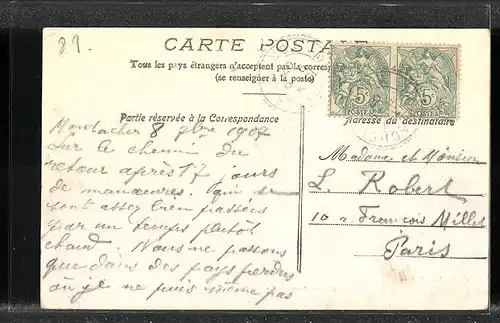 89.
CARTE POSTALE
Tous les pays étrangers n'acceptent pas la corres
(se renseigner à la poste)
5c 5c
POSTES POSTES
Partie réservée à la Correspondance
Adresse du destinataire
8 7bre 1907
Sur le chemin du
retour après 17 jours
de manœuvres. qui se
sont assez bien passées
par un temps plutôt
chaud. Nous ne passons
que dans des pays perdus
où je ne puis même pas
Madame et Monsieur
L. Robert
10 r. François Millet
Paris